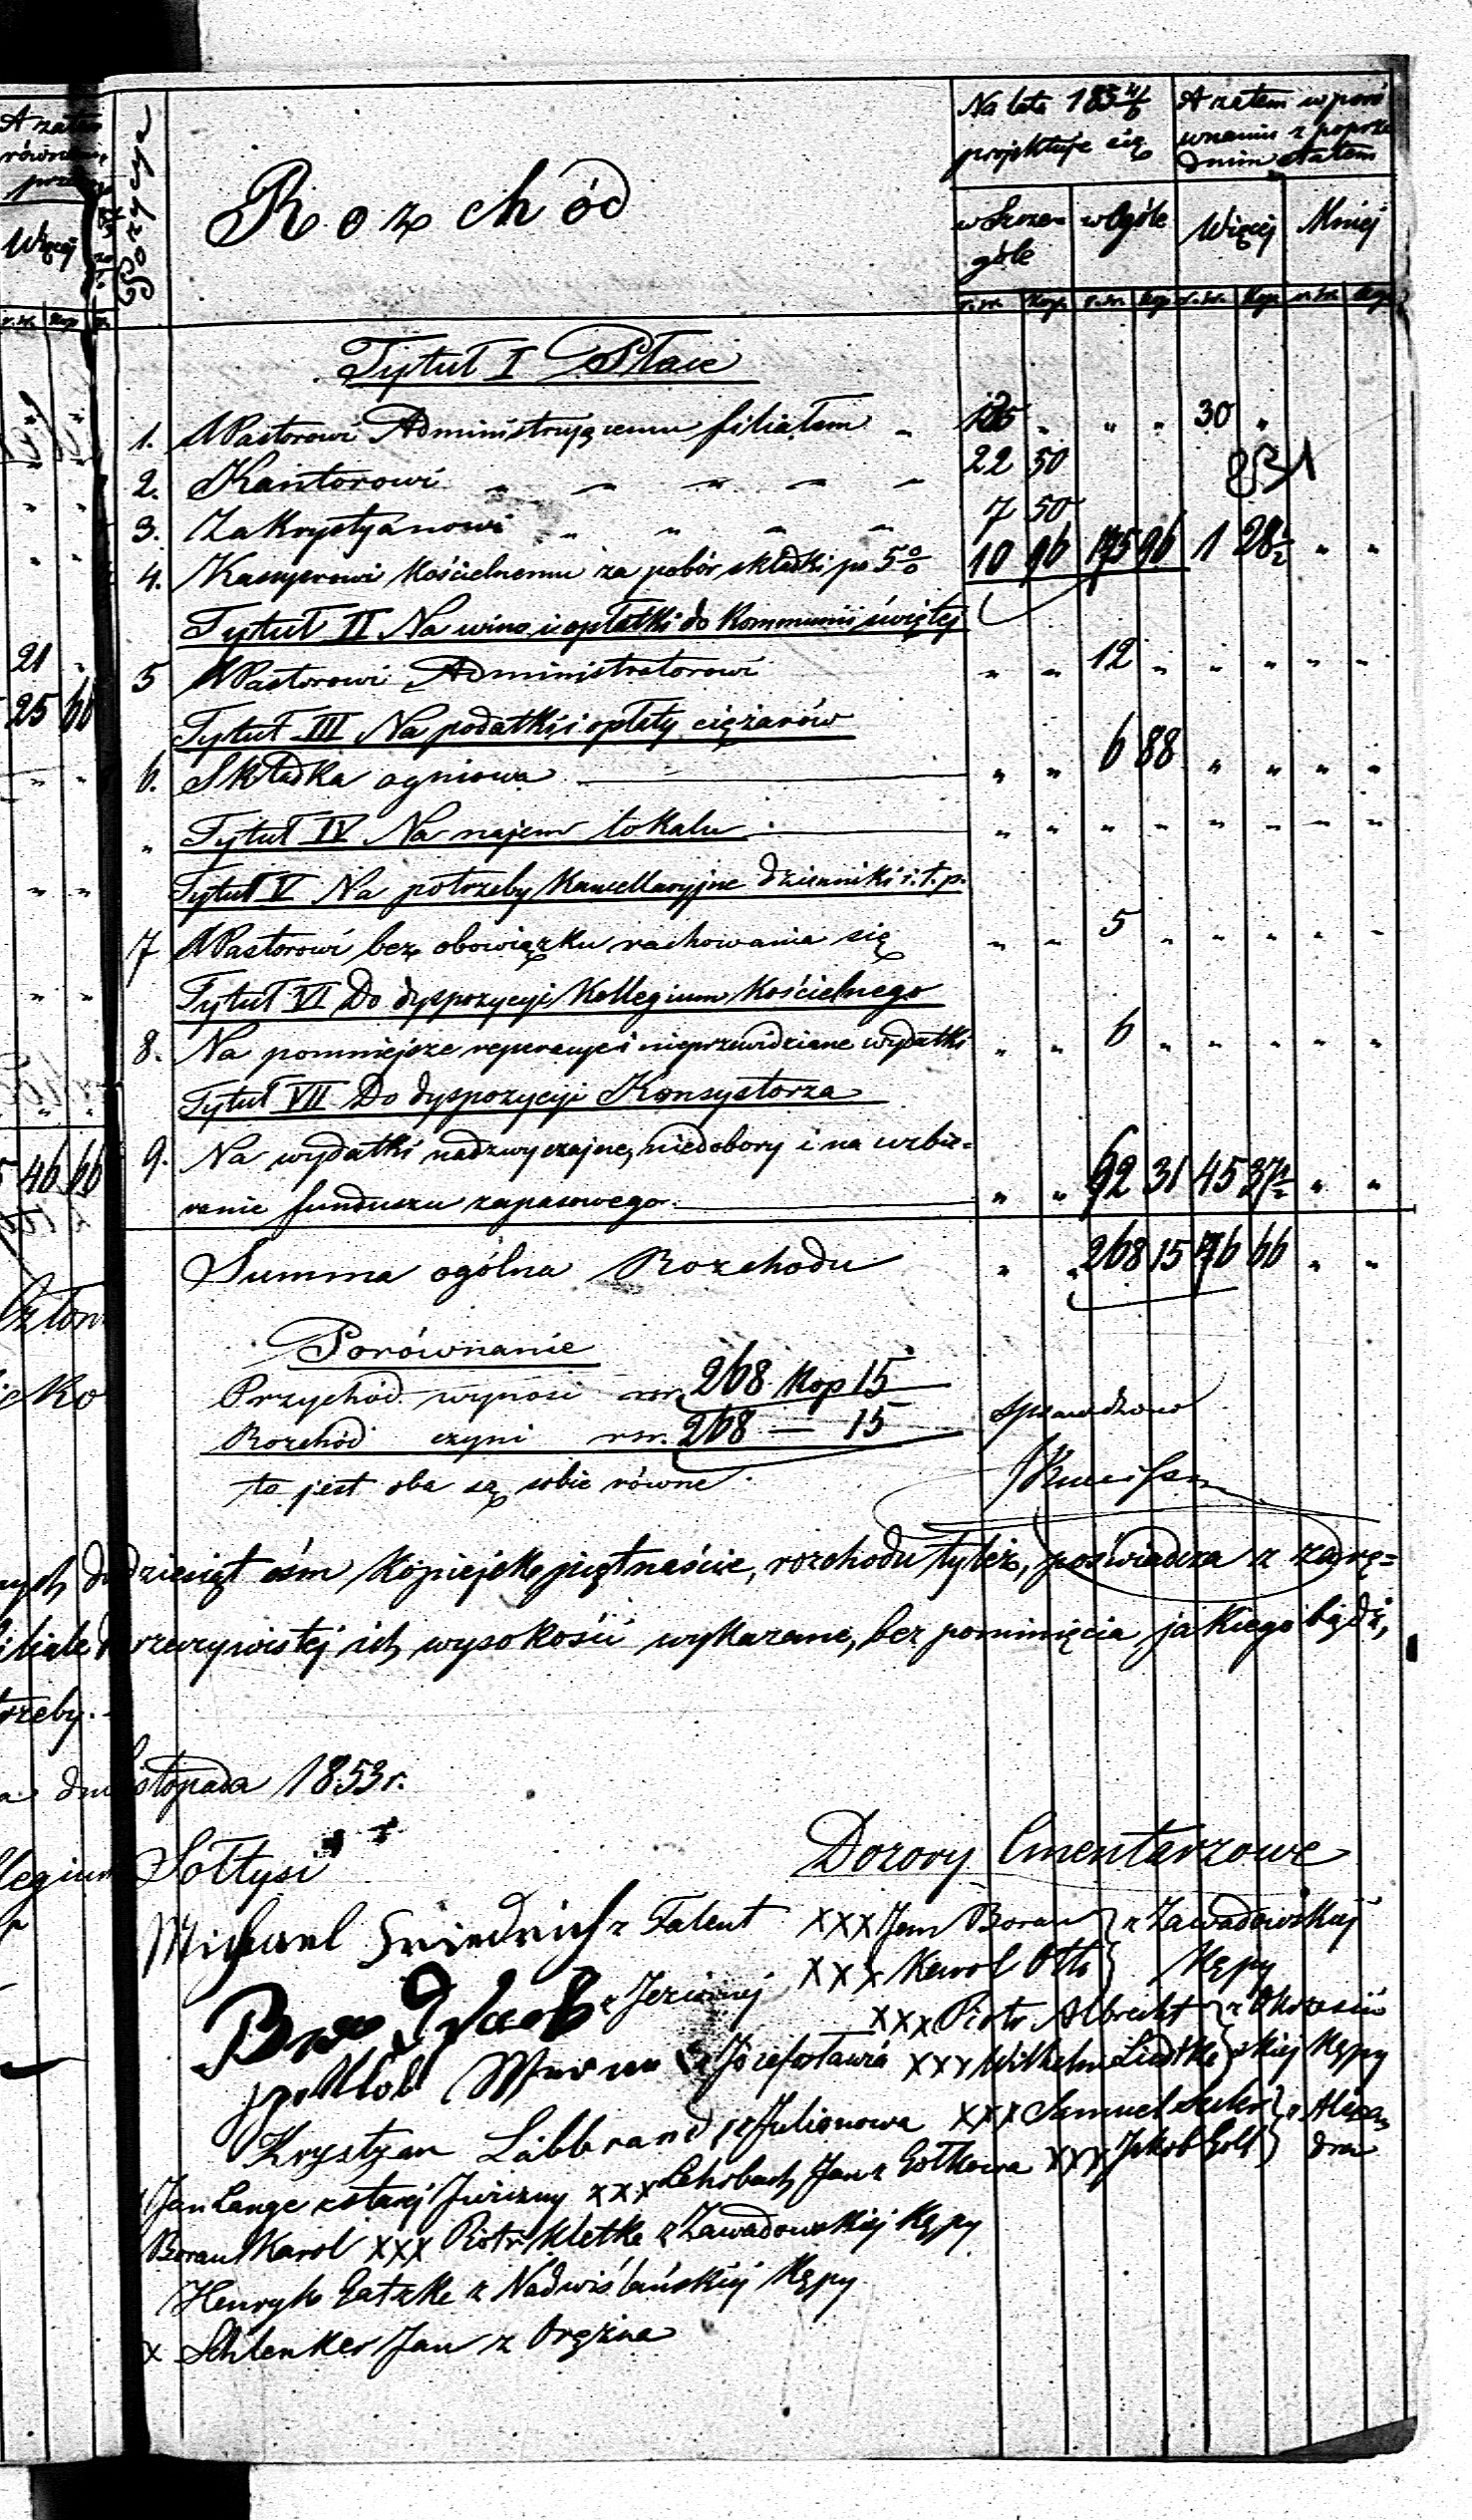 Pozycya
Rozchód
Na lata 185 4/6 projektuje się
A zatem w poró
wnaniu z poprze
dnim etatem
w Szcze
góle
w Ogóle
Więcej
Mniej
r.sr. Kop. r.sr. Kop r.sr. Kop. r.sr. Kop.
Tytuł I Płace
1. Pastorowi Administrującemu filiałem „ „ „ „ 30 „
2. Kantorowi „ „ „ „ „ 22 50
3. Zakrystyanowi „ „ „ „ 7 50
4. Kassyerowi Kościelnemu za pobór składki po 5% 10 96 175 96 1 28½ „ „
Tytuł II Na wino i opłatki do Kommunii świętej
5 Pastorowi Administratorowi „ „ 12 „ „ „ „ „
Tytuł III Na podatki i opłaty ciężarów
6. Składka ogniowa „ „ 6 88 „ „ „ „
„ Tytuł IV Na najem lokalu „ „ „ „ „ „ „ „
Tytuł V Na potrzeby Kancellaryjne dzienniki i.t.p.
7 Pastorowi bez obowiązku rachowania się „ „ 5 „ „ „ „ „
Tytuł VI Do dyspozycyi Kollegium Kościelnego
8. Na pomniejsze reperacye i nieprzewidziane wydatki „ „ 6 „ „ „ „ „
Tytuł VII Do dyspozycyi Konsystorza
9. Na wydatki nadzwyczajne, niedobory i na uzbie=
ranie funduszu zapasowego „ „ 62 31 45 37½ „ „
Summa ogólna Rozchodu „ „ 268 15 76 66 „ „
Porównanie
Przychód wynosi rsr. 268 Kop 15
Rozchód czyni rsr. 268 — 15
to jest oba są sobie równe.
sprawdzono
dziesiąt ośm Kopiejek piętnaście, rozchodu tyleż, poświadcza z zarę=
rzeczywistej ich wysokości wykazane, bez pominięcia jakiego bądź,
trzeby.
listopada 1853 r.
Sołtysi
Dozory Cmentarzowe
Michael Friedrich z Falent
XXX Jan Boraw } z Zawadowskiej
XXX Karol Otto } Kępy
z Jeziornej
XXX Piotr Albrecht } z Okrzesiń
z Józefosławia XXX Wilhelm Liedtke } skiej Kępy
Krystyan Läbbrand z Julianowa XXX Samuel } z Alexan
Jan Lange z starej Jwiczny XXX Lehrbach Jan z Gottkowa XXX Jakob Goltz } dra
Boraw Karol XXX Piotr Kletke z Zawadowskiej Kępy
Henryk Gatzke z Nadwiślańskiej Kępy
X Schlenker Jan z Oręźna